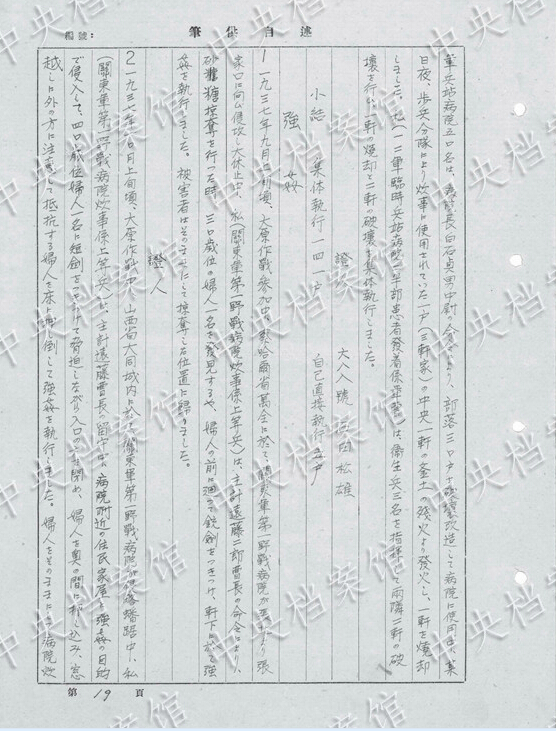 筆供自述
編號:
軍兵站病院五〇名は、病院長白石貞男中尉の命令により、部落三〇戸を破壊改造して病院に使用した某
日夜、歩兵分隊により炊事に使用されていた一戸(三軒家)の中央一軒の釜土の残火より発火し、一軒を焼却
しました。私(一二軍臨時兵站病院 半部患者発着係 )は衛生兵三名を指揮して両隣二軒の破
壊を行い一軒の焼却と二軒の破壊を集体執行しました。
證 六八八號 田松雄
小結 集体執行一四一戸 自己直接執行 戸
強姦
1 一九三七年九月 旬頃、太原作戦参加中、察哈爾省萬全に於て、関東軍第一野戦病院が より張
家口に向い侵攻し大休止中、私(関東軍第一野戦病院炊事係上等兵)は、主計遠藤二郎曹長の命令により、
砂糖掠奪を行った時、三〇歳位の婦人一名を発見するや、婦人の前に廻って銃剣をつきつけ、軒下に於て強
姦を執行しました。被害者はそのままにして掠奪した位置に帰りました。
證人
2 一九三七年 月上旬頃、太原作戦中、山西省大同城内に於て、関東軍第一野戦病院が 中、私
(関東軍第一野戦病院炊事係上等兵)は、主計遠藤曹長の留守中、病院附近の住民家屋に強姦の目的
で侵入して、四〇歳位婦人一名に短剣をつきつけて脅迫しながら入口の戸を閉め、婦人を奥の間に押し込み、窓
越しに外の方に注意して抵抗する婦人を床に押倒して強姦を執行しました。婦人をそのままにして病院炊
第19頁
中央档案馆